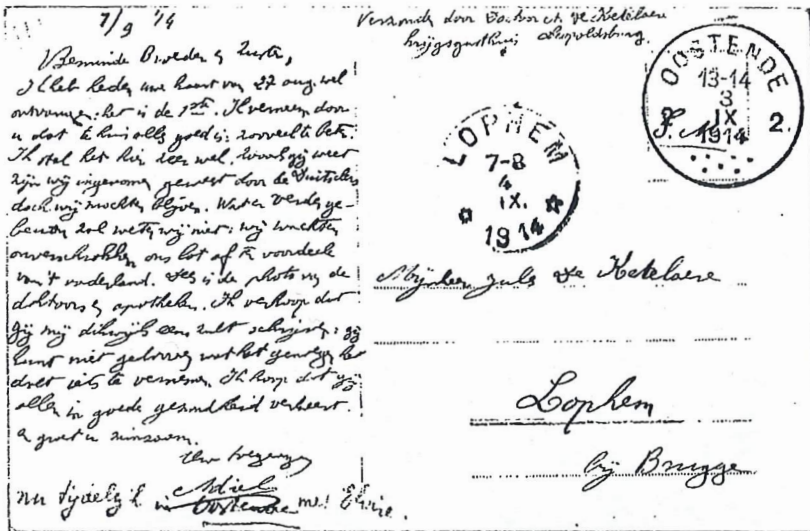 1/9 '14
Verzonden door Doctor De Ketelaere
krijgsgasthuis Leopoldsburg.
Beminde Broeder en Zuster,
Ik heb heden uwe kaart van 27 aug. wel
ontvangen: het is de 1ste. Ik verneem door
u dat te huis alles goed is: zooveel te beter.
Ik stel het hier zeer wel. Zooals gij weet
zijn wij ingenomen geweest door de Duitschers
doch wij mochten blijven. Wat er verder ge-
beuren zal weten wij niet: wij wachten
onverschrokken ons lot af te voordeele
van 't vaderland. Dees is de photo van de
doktoors en apothekers. Ik verhoop dat
gij mij dikwijls eens zult schrijven: gij
kunt niet gelooven wat het genoegen het
doet iets te vernemen. Ik hoop dat gij
allen in goede gezondheid verkeert.
en groet u minzaam.
Uw toegenegen
Adiel
nu tijdelijk in Oostende met Elvire.
OOSTENDE
13-14
3
IX
1914
2.
S. M.
LOPHEM
7-8
4
IX.
1914
Mijnheer Jules De Ketelaere
Lophem
bij Brugge